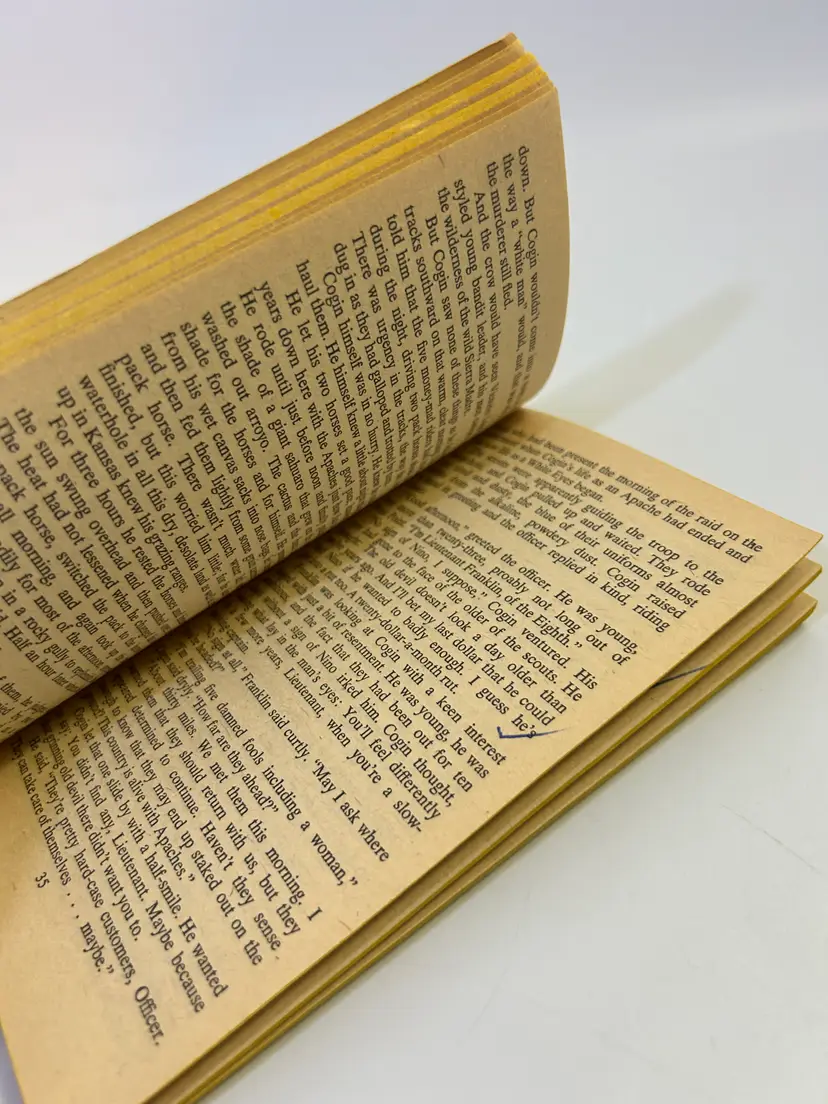 down. But Cogin wouldn't come into a
the way a "white man" would, and
the murderer still fled.
And the crow would have seen
styled young bandit leader, and his
the wilderness of the wild Sierra Madre.
But Cogin saw none of these things as
tracks southward on that warm, clear
told him that the five money-mad riders had
during the night, driving two pack horses
There was urgency in the tracks, the way
dug in as they had galloped and trotted by
Cogin himself was in no hurry. He knew
haul them. He himself knew a little about
He let his two horses set a good pace
years down here with the Apaches just
He rode until just before noon and
the shade of a giant sahuaro that grew
washed out arroyo. The cactus and the
shade for the horses and for himself. He
from his wet canvas sacks into nose bags
and then fed them lightly from some grain
pack horse. There wasn't much, were
finished, but this worried him little, he
waterhole in all this dry, desolate land
up in Kansas knew his grazing ranges.
For three hours he rested the horses
the sun swung overhead and then
The heat had not lessened when he changed
pack horse, switched the pack to the
all morning, and again took up
dily for most of the afternoon
in a rocky gully to
Half an hour later
had been present the morning of the raid on the
when Cogin's life as an Apache had ended and
as a White-Eyes began.
were apparently guiding the troop to the
and Cogin pulled up and waited. They rode
and dusty, the blue of their uniforms almost
the alkaline, powdery dust. Cogin raised
greeting and the officer replied in kind, riding
afternoon," greeted the officer. He was young,
than twenty-three, proably not long out of
"I'm Lieutenant Franklin, of the Eighth."
of Nino, I suppose," Cogin ventured. His
gone to the face of the older of the scouts. He
old devil doesn't look a day older than
ago. And I'll bet my last dollar that he could
he wanted to badly enough. I guess he's
too. A twenty-dollar-a-month rut.
was looking at Cogin with a keen interest
just a bit of resentment. He was young, he was
and the fact that they had been out for ten
a sign of Nino irked him. Cogin thought,
lay in the man's eyes: You'll feel differently
few more years, Lieutenant, when you're a slow-
captain.
sign at all," Franklin said curtly. "May I ask where
headed?"
trailing five damned fools including a woman,"
said dryly. "How far are they ahead?"
thirty miles. We met them this morning. I
them that they should return with us, but they
determined to continue. Haven't they sense
to know that they may end up staked out on the
This country is alive with Apaches."
let that one slide by with a half-smile. He wanted
say: You didn't find any, Lieutenant. Maybe because
grinning old devil here didn't want you to.
He said, "They're pretty hard-case customers, Officer.
They can take care of themselves . . . maybe."
35